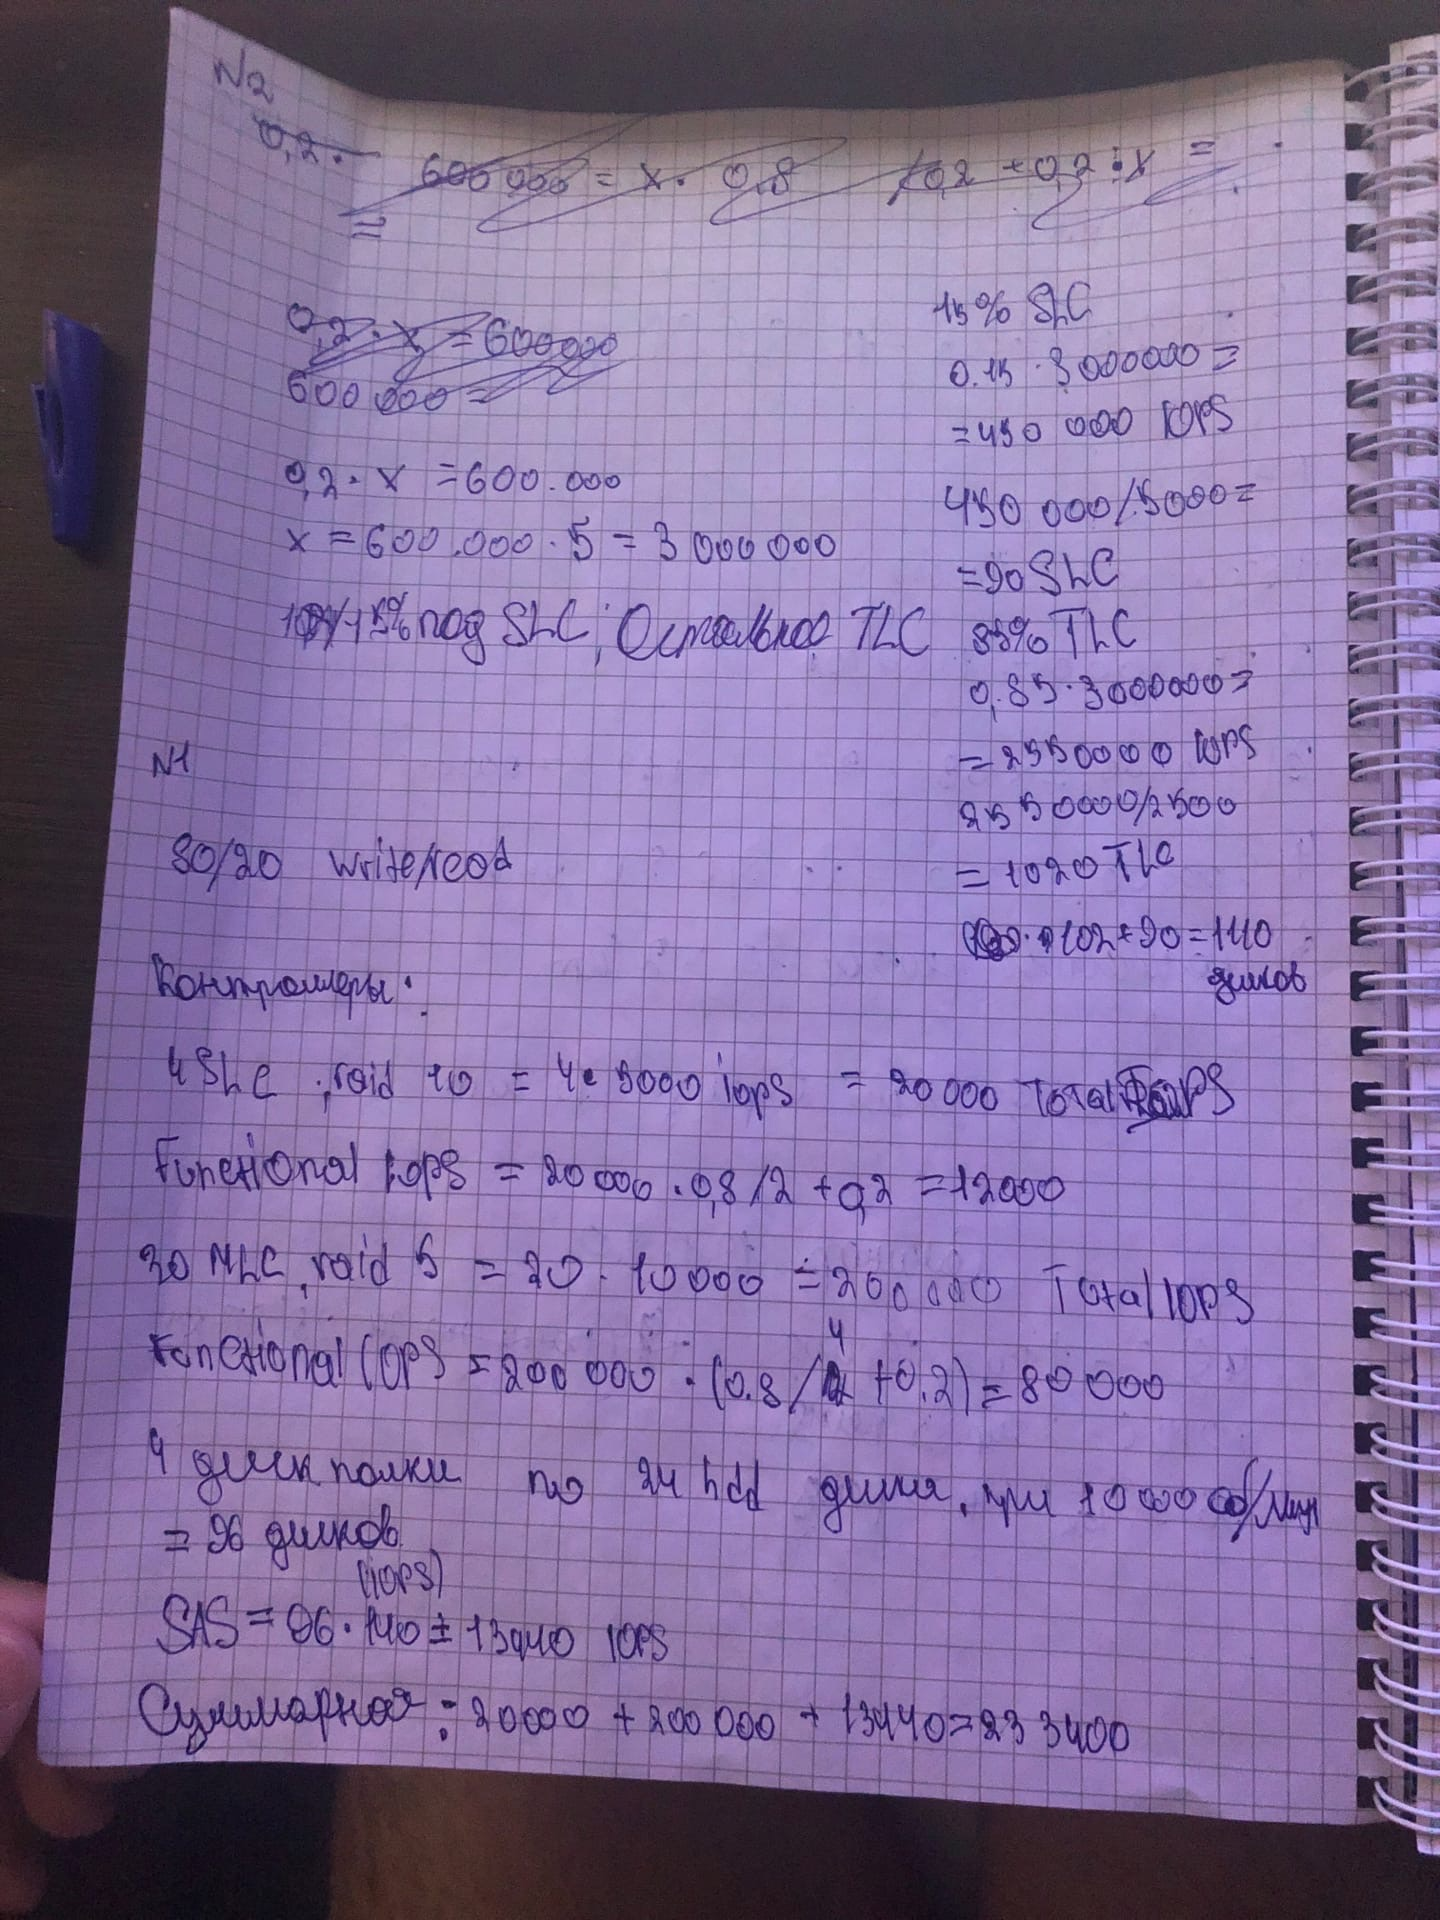 N2
0,2·
600 000 = x · 0,8 /0,2 + 0,2 · x =
=
0,2 · x = 600000
600 000 =
0,2 · x = 600.000
x = 600.000 · 5 = 3 000 000
15% под SLC, Остальное TLC
15% SLC
0.15 · 3 000000 =
= 450 000 IOPS
450 000/5000 =
= 90 SLC
85% TLC
0,85 · 3000000 =
= 2550000 IOPS
2550000/2500
= 1020 TLC
102 + 90 = 1110
дисков
N1
80/20 write/read
Контроллеры:
4 SLC, raid 10 = 4 · 5000 iops = 20 000 Total IOPS
Functional iops = 20 000 · 0,8 /2 + 0,2 = 12000
20 MLC, raid 5 = 20 · 10 000 = 200 000 Total IOPS
Functional IOPS = 200 000 · (0.8 / 4 + 0.2) = 80 000
4 диск полки по 24 hdd диска, при 10 000 об/мин
= 96 дисков
(iops)
SAS = 96 · 140 = 13440 IOPS
Суммарная: 20000 + 200 000 + 13440 = 233400